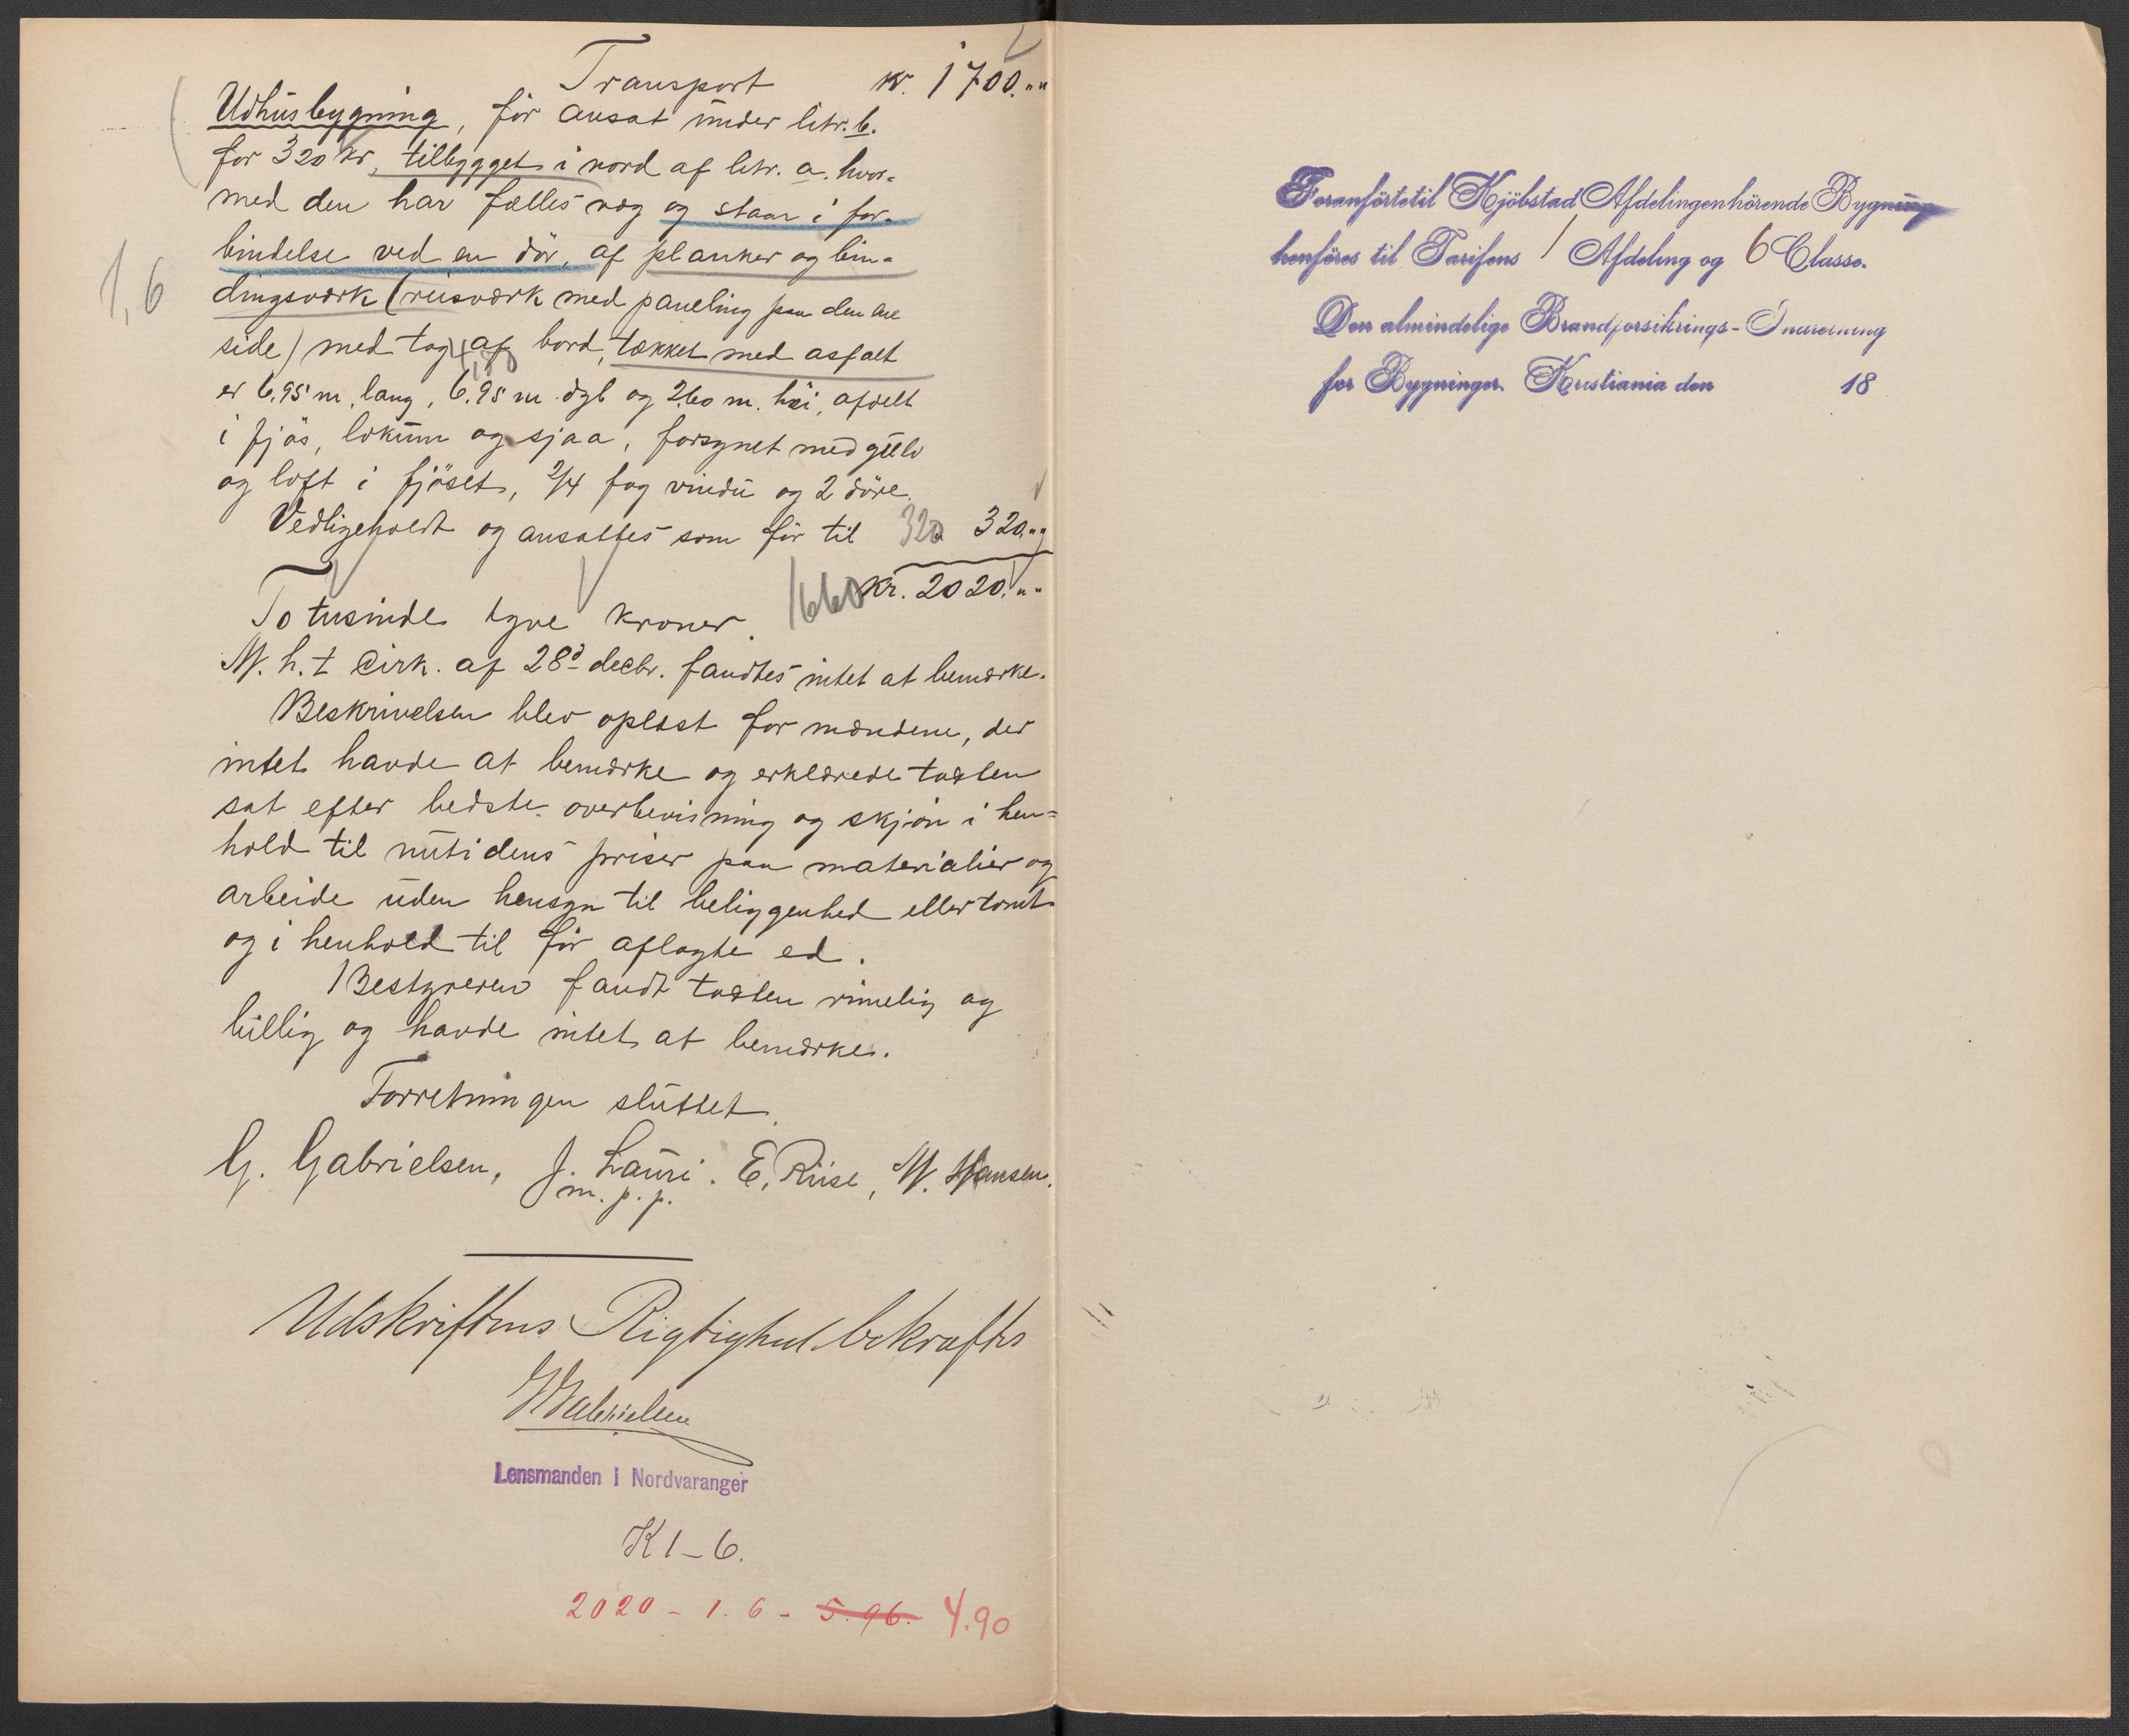 Transport kr. 1700.""
Udhusbygning, før ansat under litr. b.
for 320 kr, tilbygget i nord af litr. a. hvor-
med den har fælles væg og staar i for-
bindelse ved en dør, af planker og bin-
1,6
dingsværk (reisværk med paneling paa den ene
side) med tag af bord, tækket med asfalt
4,80
er 6.95 m. lang, 6.95 m. dyb og 2.60 m. høi, afdelt
i fjøs, lokum og sjaa, forsynet med gulv
og loft i fjøset, 2/4 fag vindu og 2 døre.
Vedligeholdt og ansattes som før til 320 320.""
1660 kr. 2020.""
To tusinde tyve kroner.
M. h. t cirk. af 28d decbr. fandtes intet at bemærke.
Beskrivelsen blev oplæst for mændene, der
intet havde at bemærke og erklærede taxten
sat efter bedste overbevisning og skjøn i hen=
hold til nutidens priser paa materialier og
arbeide uden hensyn til beliggenhed eller tomt
og i henhold til før aflagte ed.
Bestyreren fandt taxten rimelig og
billig og havde intet at bemærke.
Forretningen sluttet.
G. Gabrielsen, J. Lauri. E. Riise, M. Hansen.
m. p. p.
Udskriftens Rigtighed bekræftes
GGabrielsen
Lensmanden i Nordvaranger
K 1-6.
2020 - 1. 6 - 5.96. 4.90
Foranførte til Kjöbstad Afdelingen hörende Bygning
henföres til Tarifens 1 Afdeling og 6 Classe.
Den almindelige Brandforsikrings-Indretning
for Bygninger. Kristiania den 18